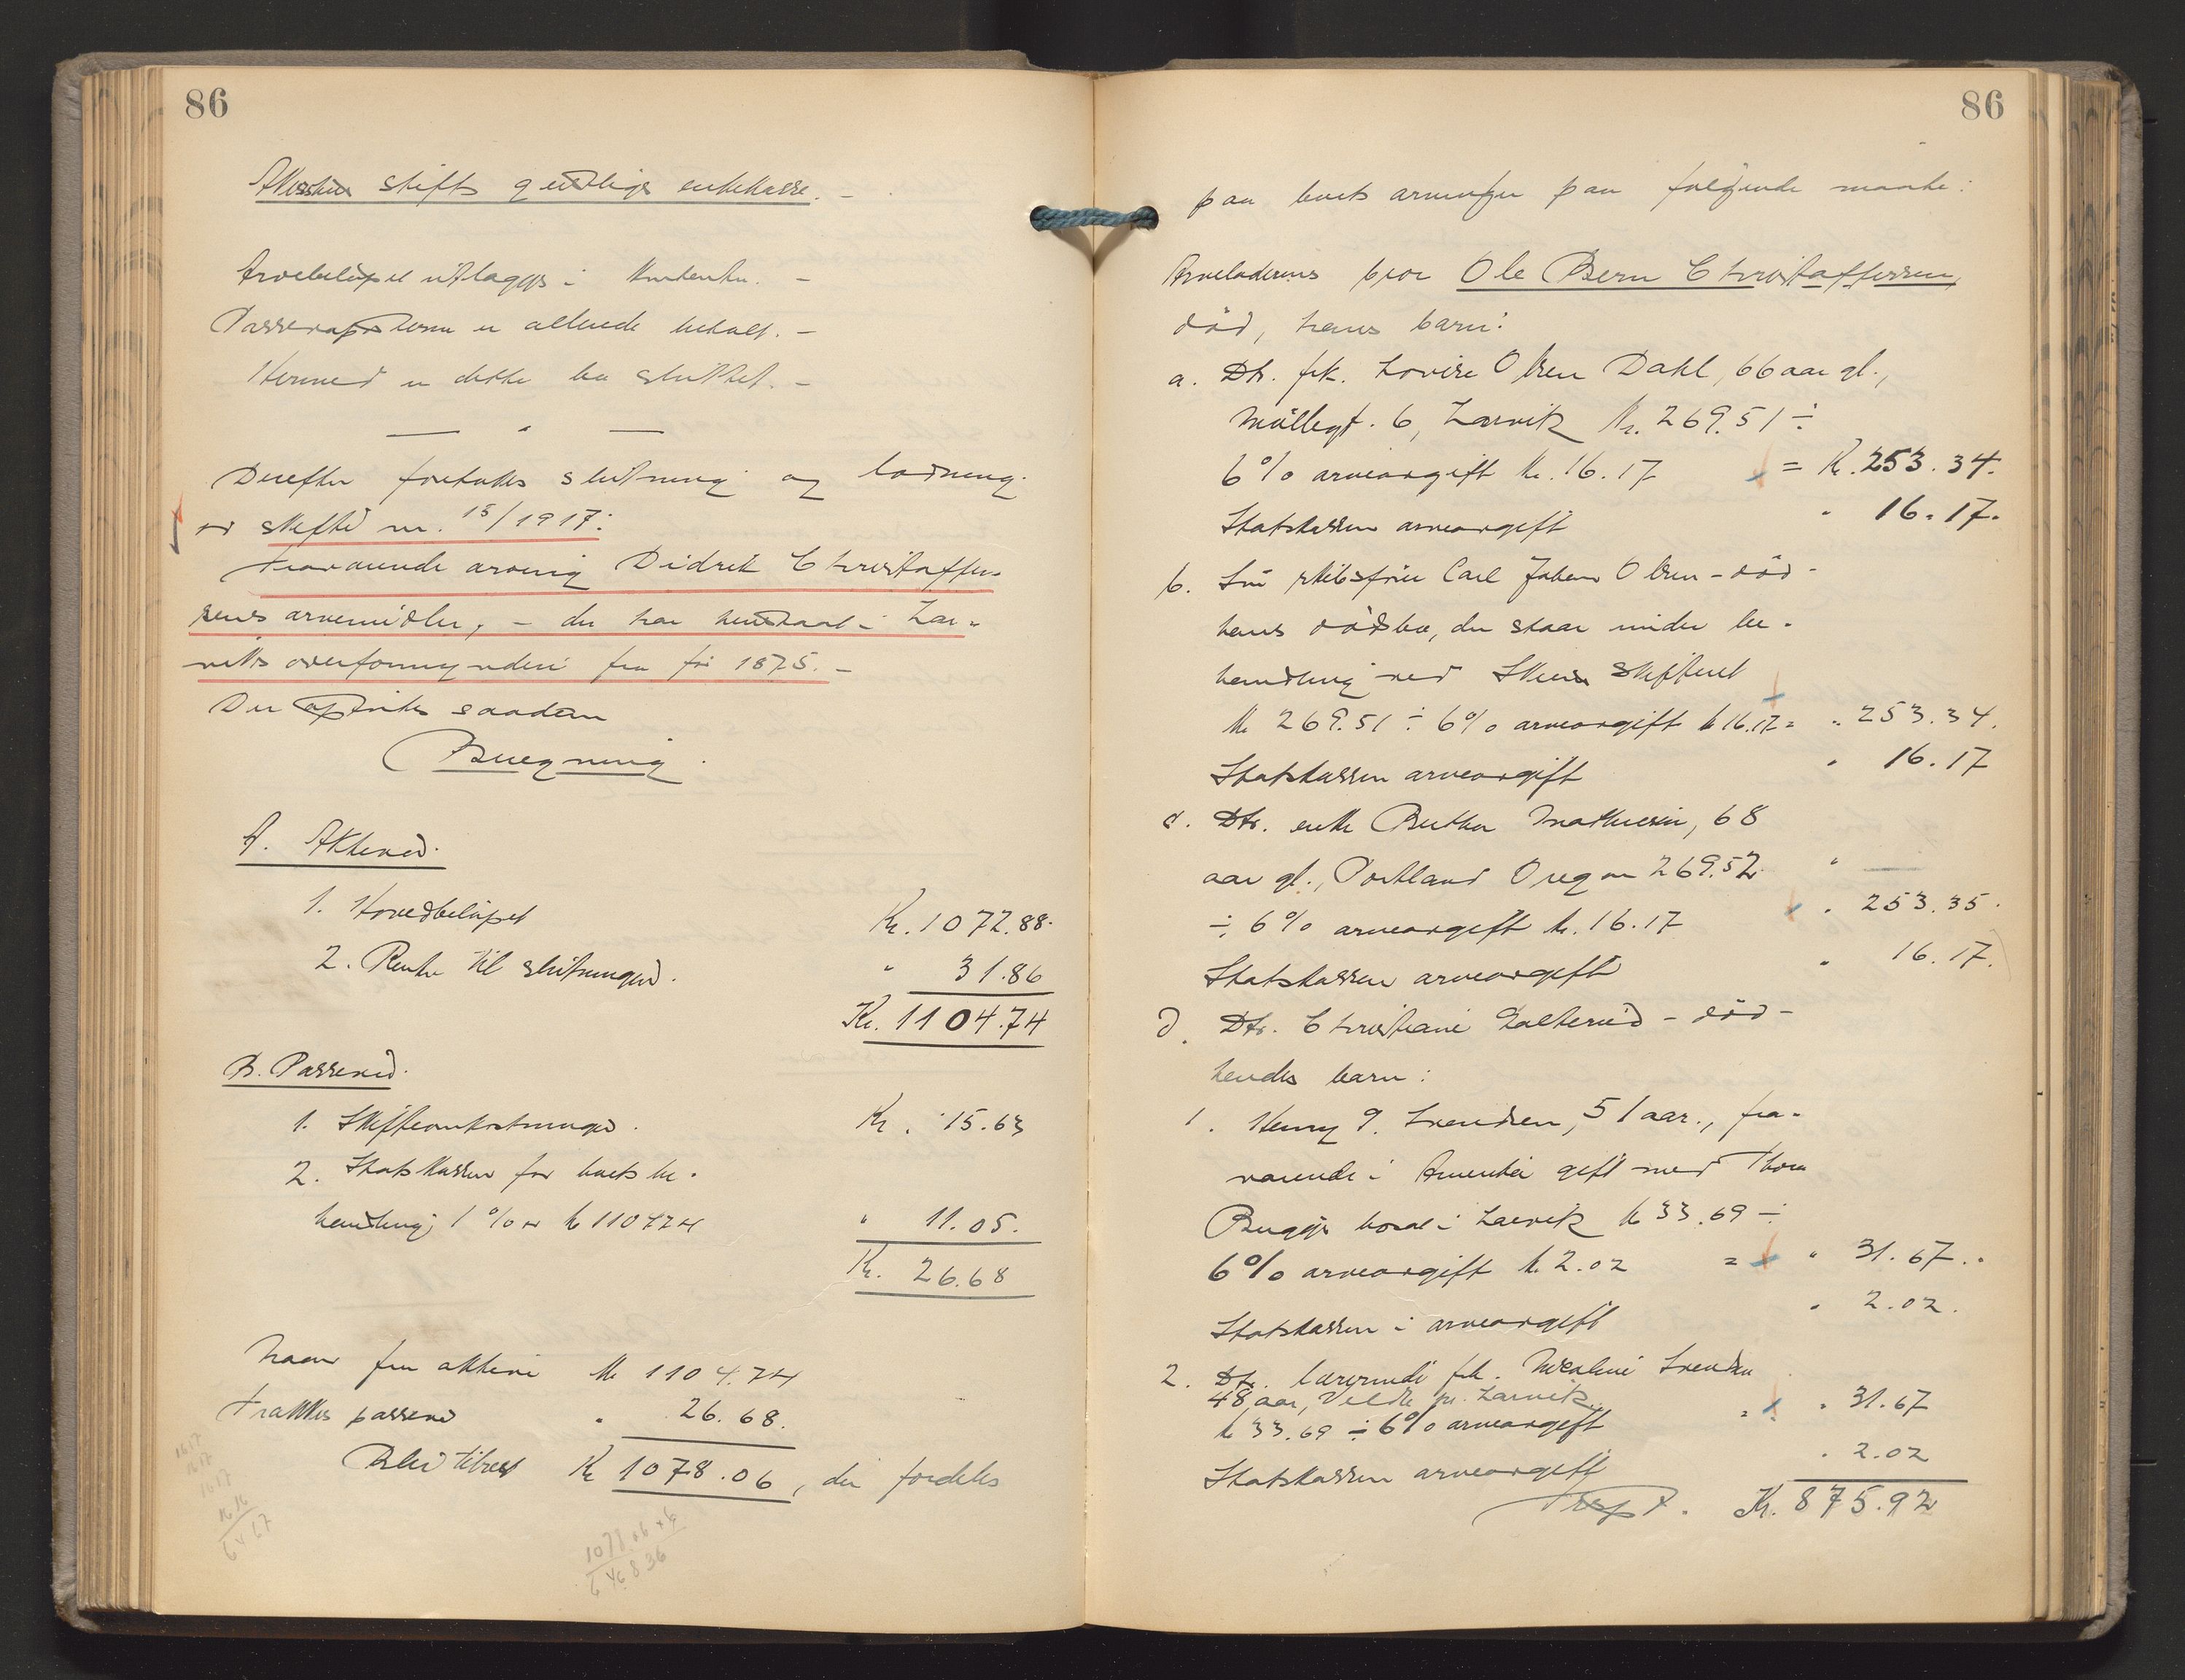 86
stifts geistlige enkekasse. -
Arvebeløpet utlægges i kontanter. -
Passivaposterne er allerede betalt. -
Hermed er dette bo sluttet. -
Derefter foretokes slutning og lodning
av skifte nr. 15/1917:
fraværende arving Didrik Christoffer-
sens arvemidler, - der har henstaat i Lar-
viks overformynderi fra før 1875. -
Der optokes saadan
Beregning.
A. Aktiva.
1. Hovedbeløpet Kr. 1072.88.
2. Renter til slutningen. " 31.86
Kr. 1104.74
B. Passiva.
1. Skifteomkostninger. Kr. 15.63
2. Statskassen for boets be-
handling 1 % av kr 1104.74 " 11.05.
Kr. 26.68
Naar fra aktiva Kr 1104.74
trækkes passiva " 26.68.
Blir tilrest Kr 1078.06, der fordeles
1617
1617
1617
1616
6467
1078.06 * 6
646836
86
paa boets arvinger paa følgende maate:
Arveladerens bror Ole Bern Christoffersen,
død, hans barn:
a. Dtr. frk. Lovise Olsen Dahl, 66 aar gl.,
Møllegt. 6, Larvik Kr. 269.51 ÷
6 % arveavgift kr. 16.17 = Kr. 253.34.
Statskassen arveavgift " 16.17.
b. Søn skibsfører Carl Johan Olsen - død -
hans dødsbo, der staar under be-
handling ved Skiens skifteret
kr 269.51 ÷ 6 % arveavgift kr 16.17 = " 253.34.
Statskassen arveavgift " 16.17
c. Dtr. enke Berthe Mathiesen, 68
aar gl., Portland Oregon 269.52 "
÷ 6 % arveavgift kr. 16.17 " 253.35.
Statskassen arveavgift " 16.17.
d. Dtr. Christiane - død -
hendes barn:
1. Henny Svendsen, 51 aar., fra-
værende i Amerika gift med Thora
Bugge bosat i Larvik kr 33.69 ÷
6 % arveavgift kr. 2.02 = " 31.67.
Statskassen i arveavgift " 2.02.
2. Dtr. lærerinde frk. Nicoline Svendsen
48 aar, Veldre pr. Larvik
kr 33.69 ÷ 6 % arveavgift = " 31.67
Statskassen arveavgift " 2.02
Trspt. Kr. 875.92